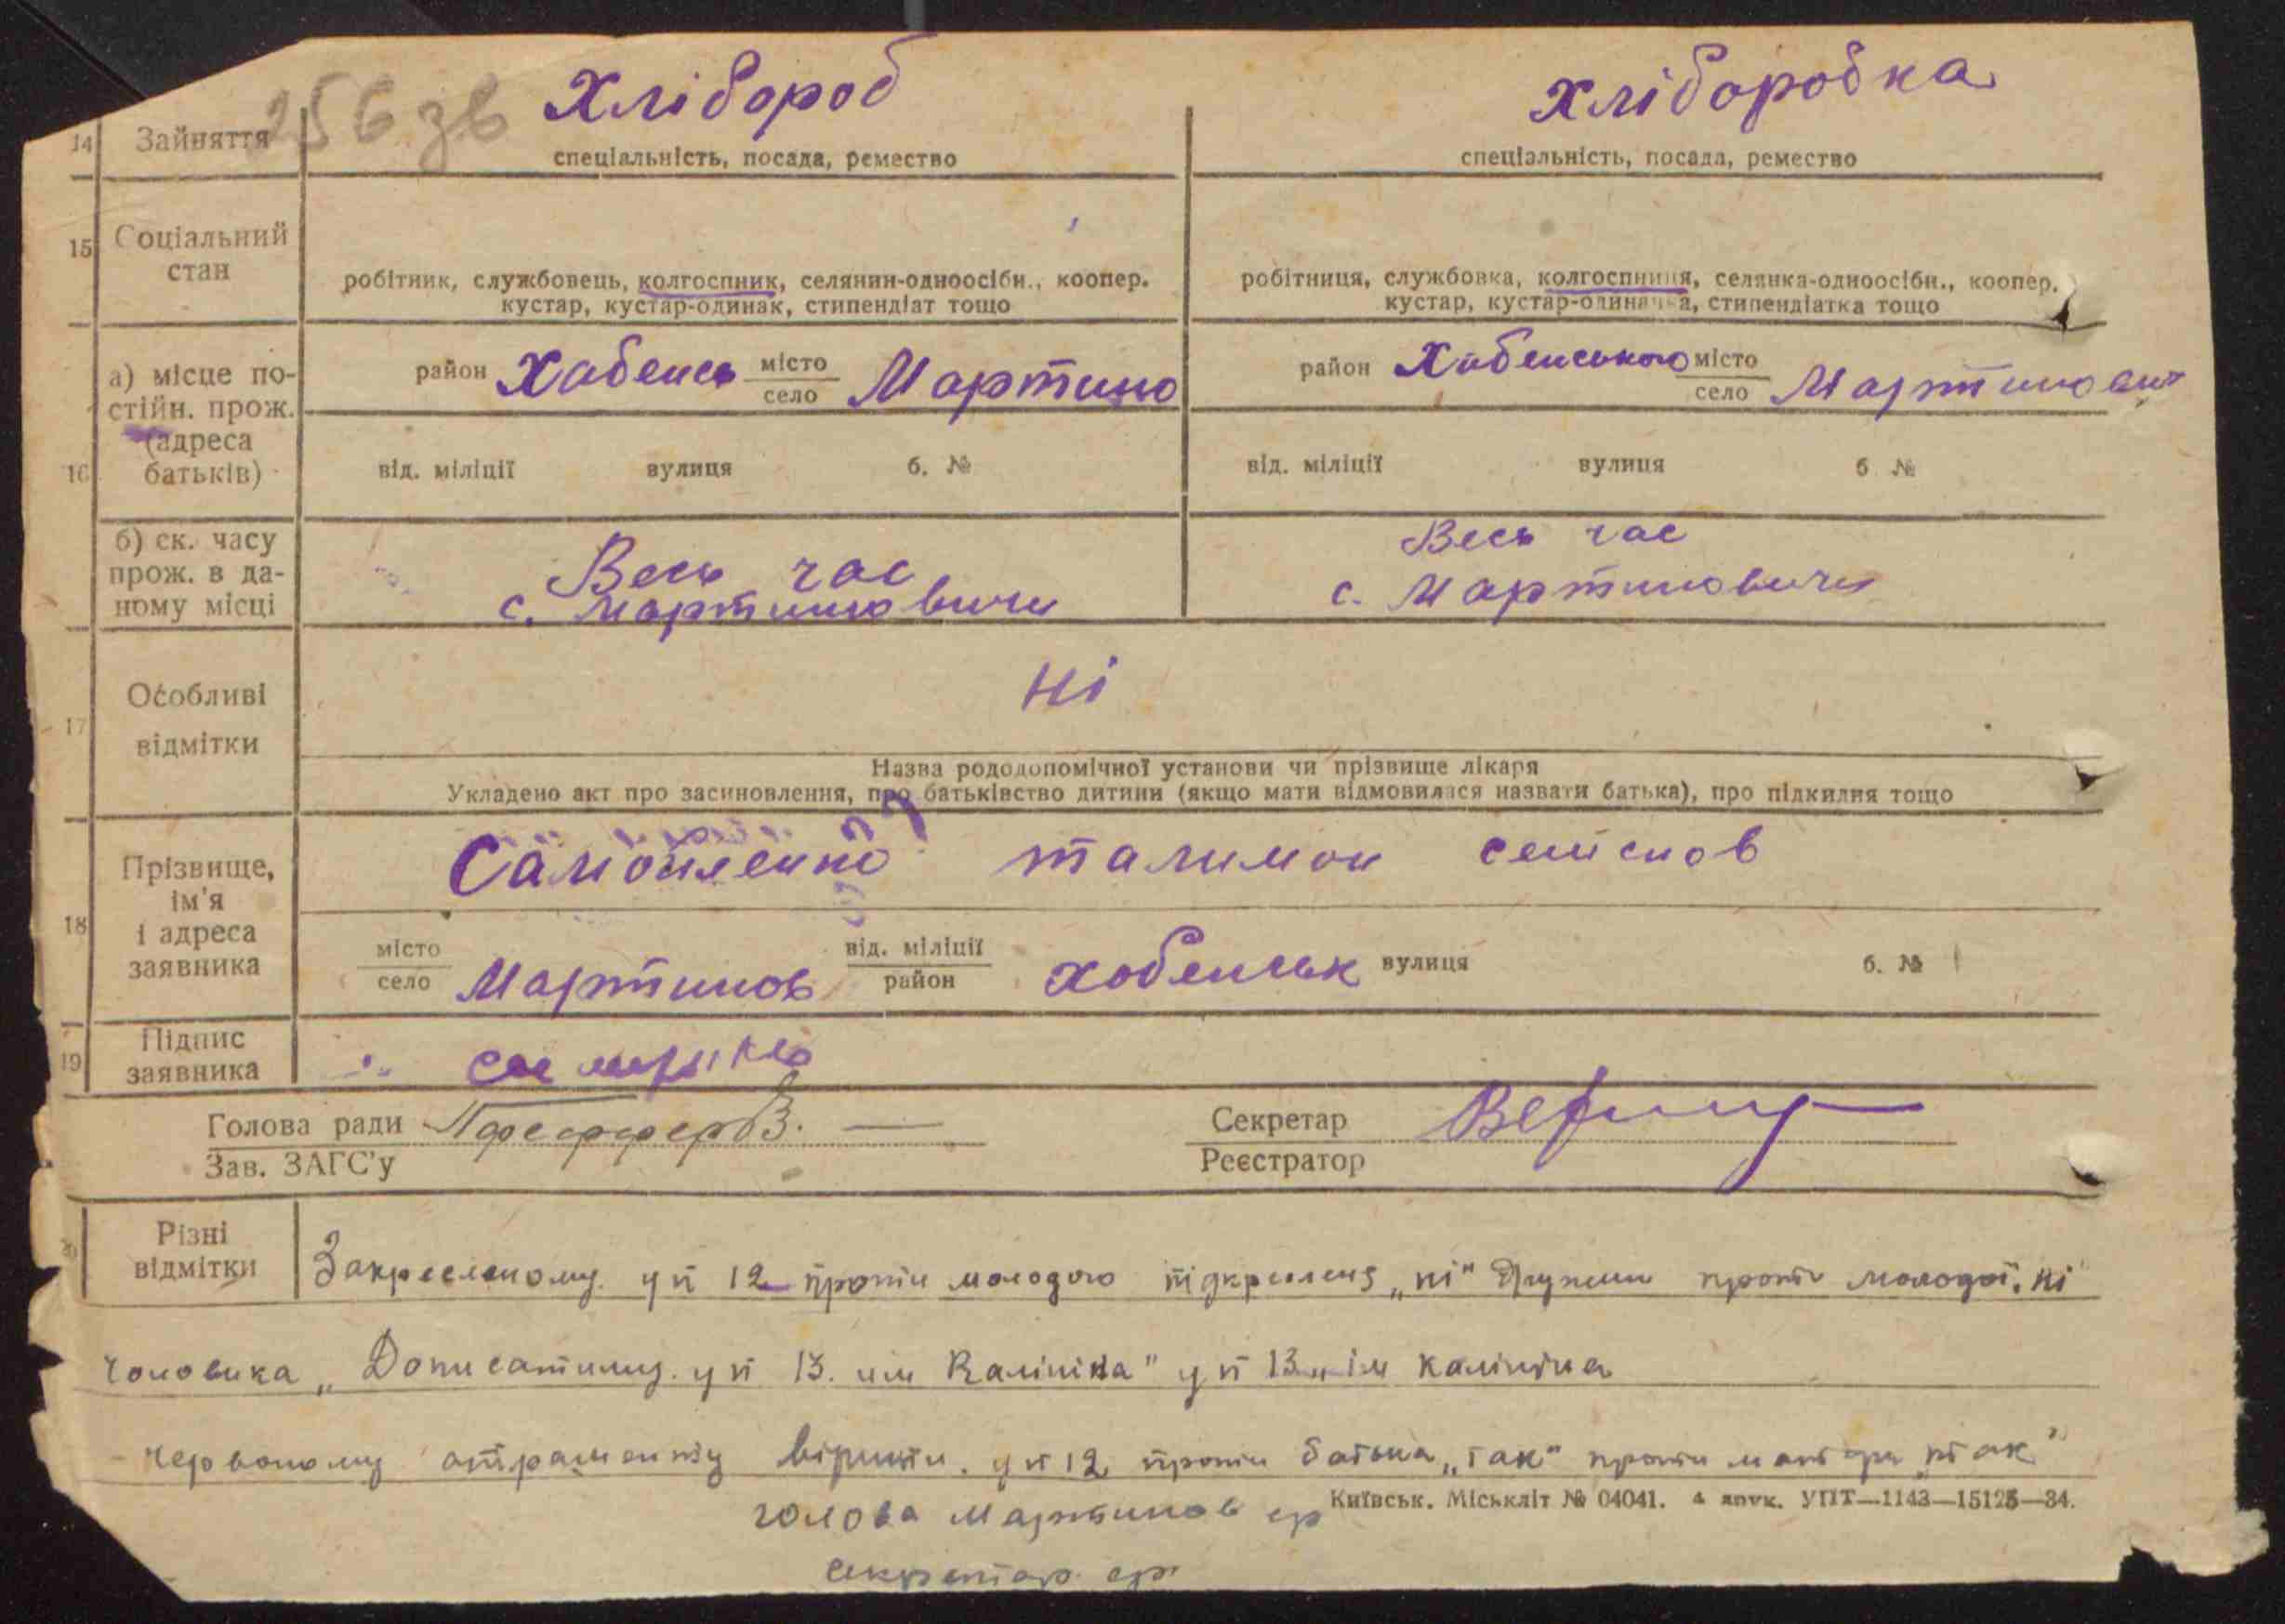 256 зв
Хлібороб Хліборобка
14 Зайняття
спеціальність, посада, ремество спеціальність, посада, ремество
15 Соціальний стан
робітник, службовець, колгоспник, селянин-одноосібн., коопер. робітниця, службовка, колгоспниця, селянка-одноосібн., коопер.
кустар, кустар-одинак, стипендіат тощо кустар, кустар-одиначка, стипендіатка тощо
16 а) місце постійн. прож. (адреса батьків)
район Хабенсь місто село Мартино район Хабенського місто село Мартинович
від. міліції вулиця б. № від. міліції вулиця б №
б) ск. часу прож. в даному місці
Весь час Весь час
с. Мартиновичи с. Мартиновичи
17 Особливі відмітки
Ні
Назва рододопомічної установи чи прізвище лікаря
Укладено акт про засиновлення, про батьківство дитини (якщо мати відмовилася назвати батька), про підкидня тощо
18 Прізвище, ім'я і адреса заявника
Самойленко талимон
місто село Мартинов від. міліції район Хобенськ вулиця б. №
19 Підпис заявника
Голова ради
Зав. ЗАГС'у
Секретар
Реєстратор
20 Різні відмітки
Закресленому у п 12 проти молодого підкреслено „ні" Дружини проти молодої „ні
чоловика „Дописатиму у п 13. им Калініна" у п 13 „ім Калініна
червоному отраменту вірити. у п 12 проти батька „так" проти матери „так"
Київськ. Міськліт № 04041. 4 друк. УПТ—1143—15125—34.
голова Мартинов ср
секретар ср